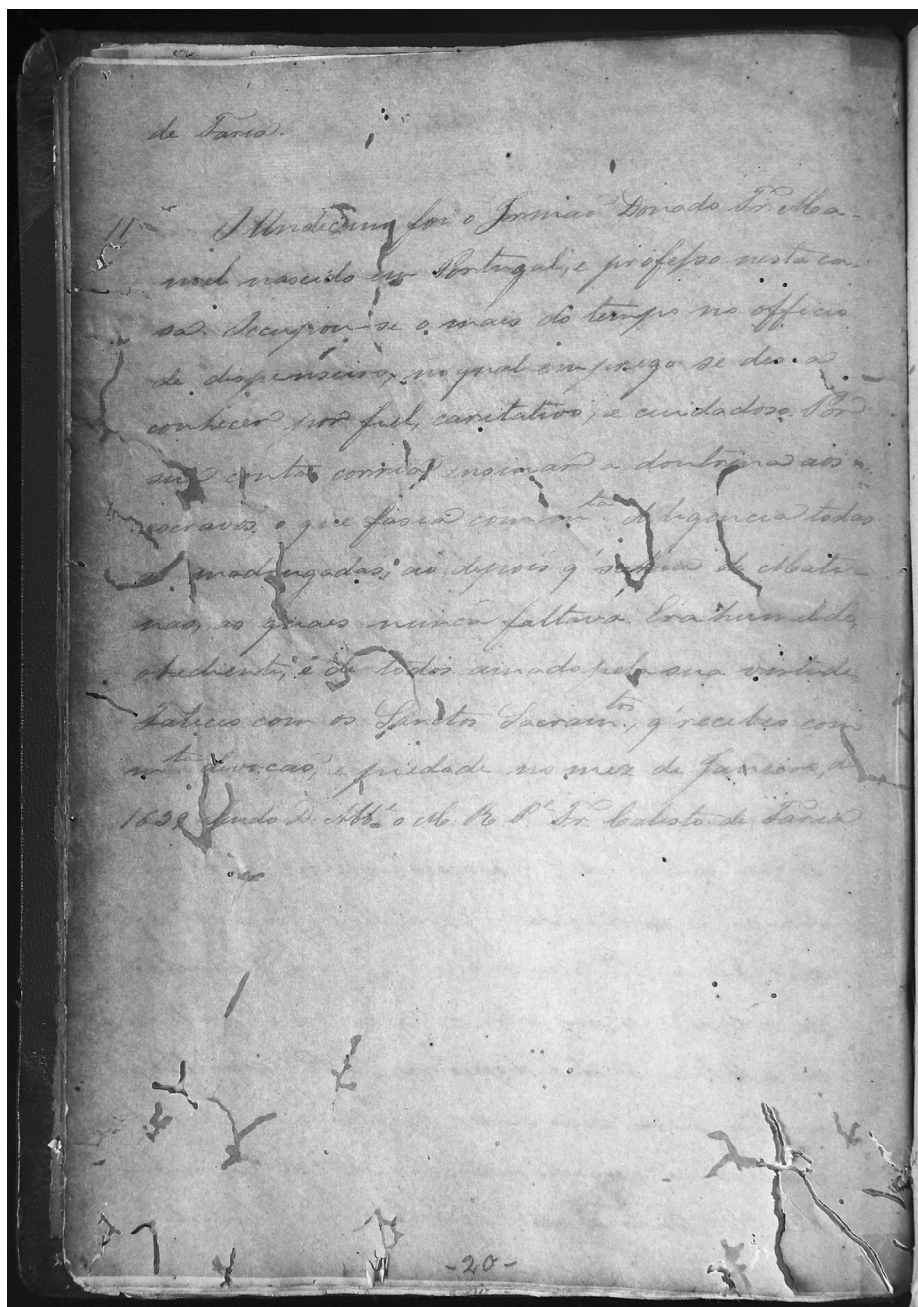 de Faria.
11 O Undecimo foi o Irmaõ Donado Fr. Ma-
noel nascido em Portugal, e professo nesta ca-
sa. Occupou-se o mais do tempo no officio
de dispenseiro, no qual emprego se deo a
conhecer por fiel, caritativo, e cuidadoso. Por
sua conta corria ensinar a doutrina aos
escravos, o que fasia com mta deligencia todas
as madrugadas, ao depois q' sahia de Mati-
nas, as quais nunca faltava. Era humilde,
obediente, e de todos amado pela sua vertude
Faleceo com os Sanctos Sacramtos, q' recebeo com
mta devocaõ, e piedade no mez de Janeiro, de
sendo D. Abbe. o M. R. Pe. Fr. Calisto de Faria
-20-